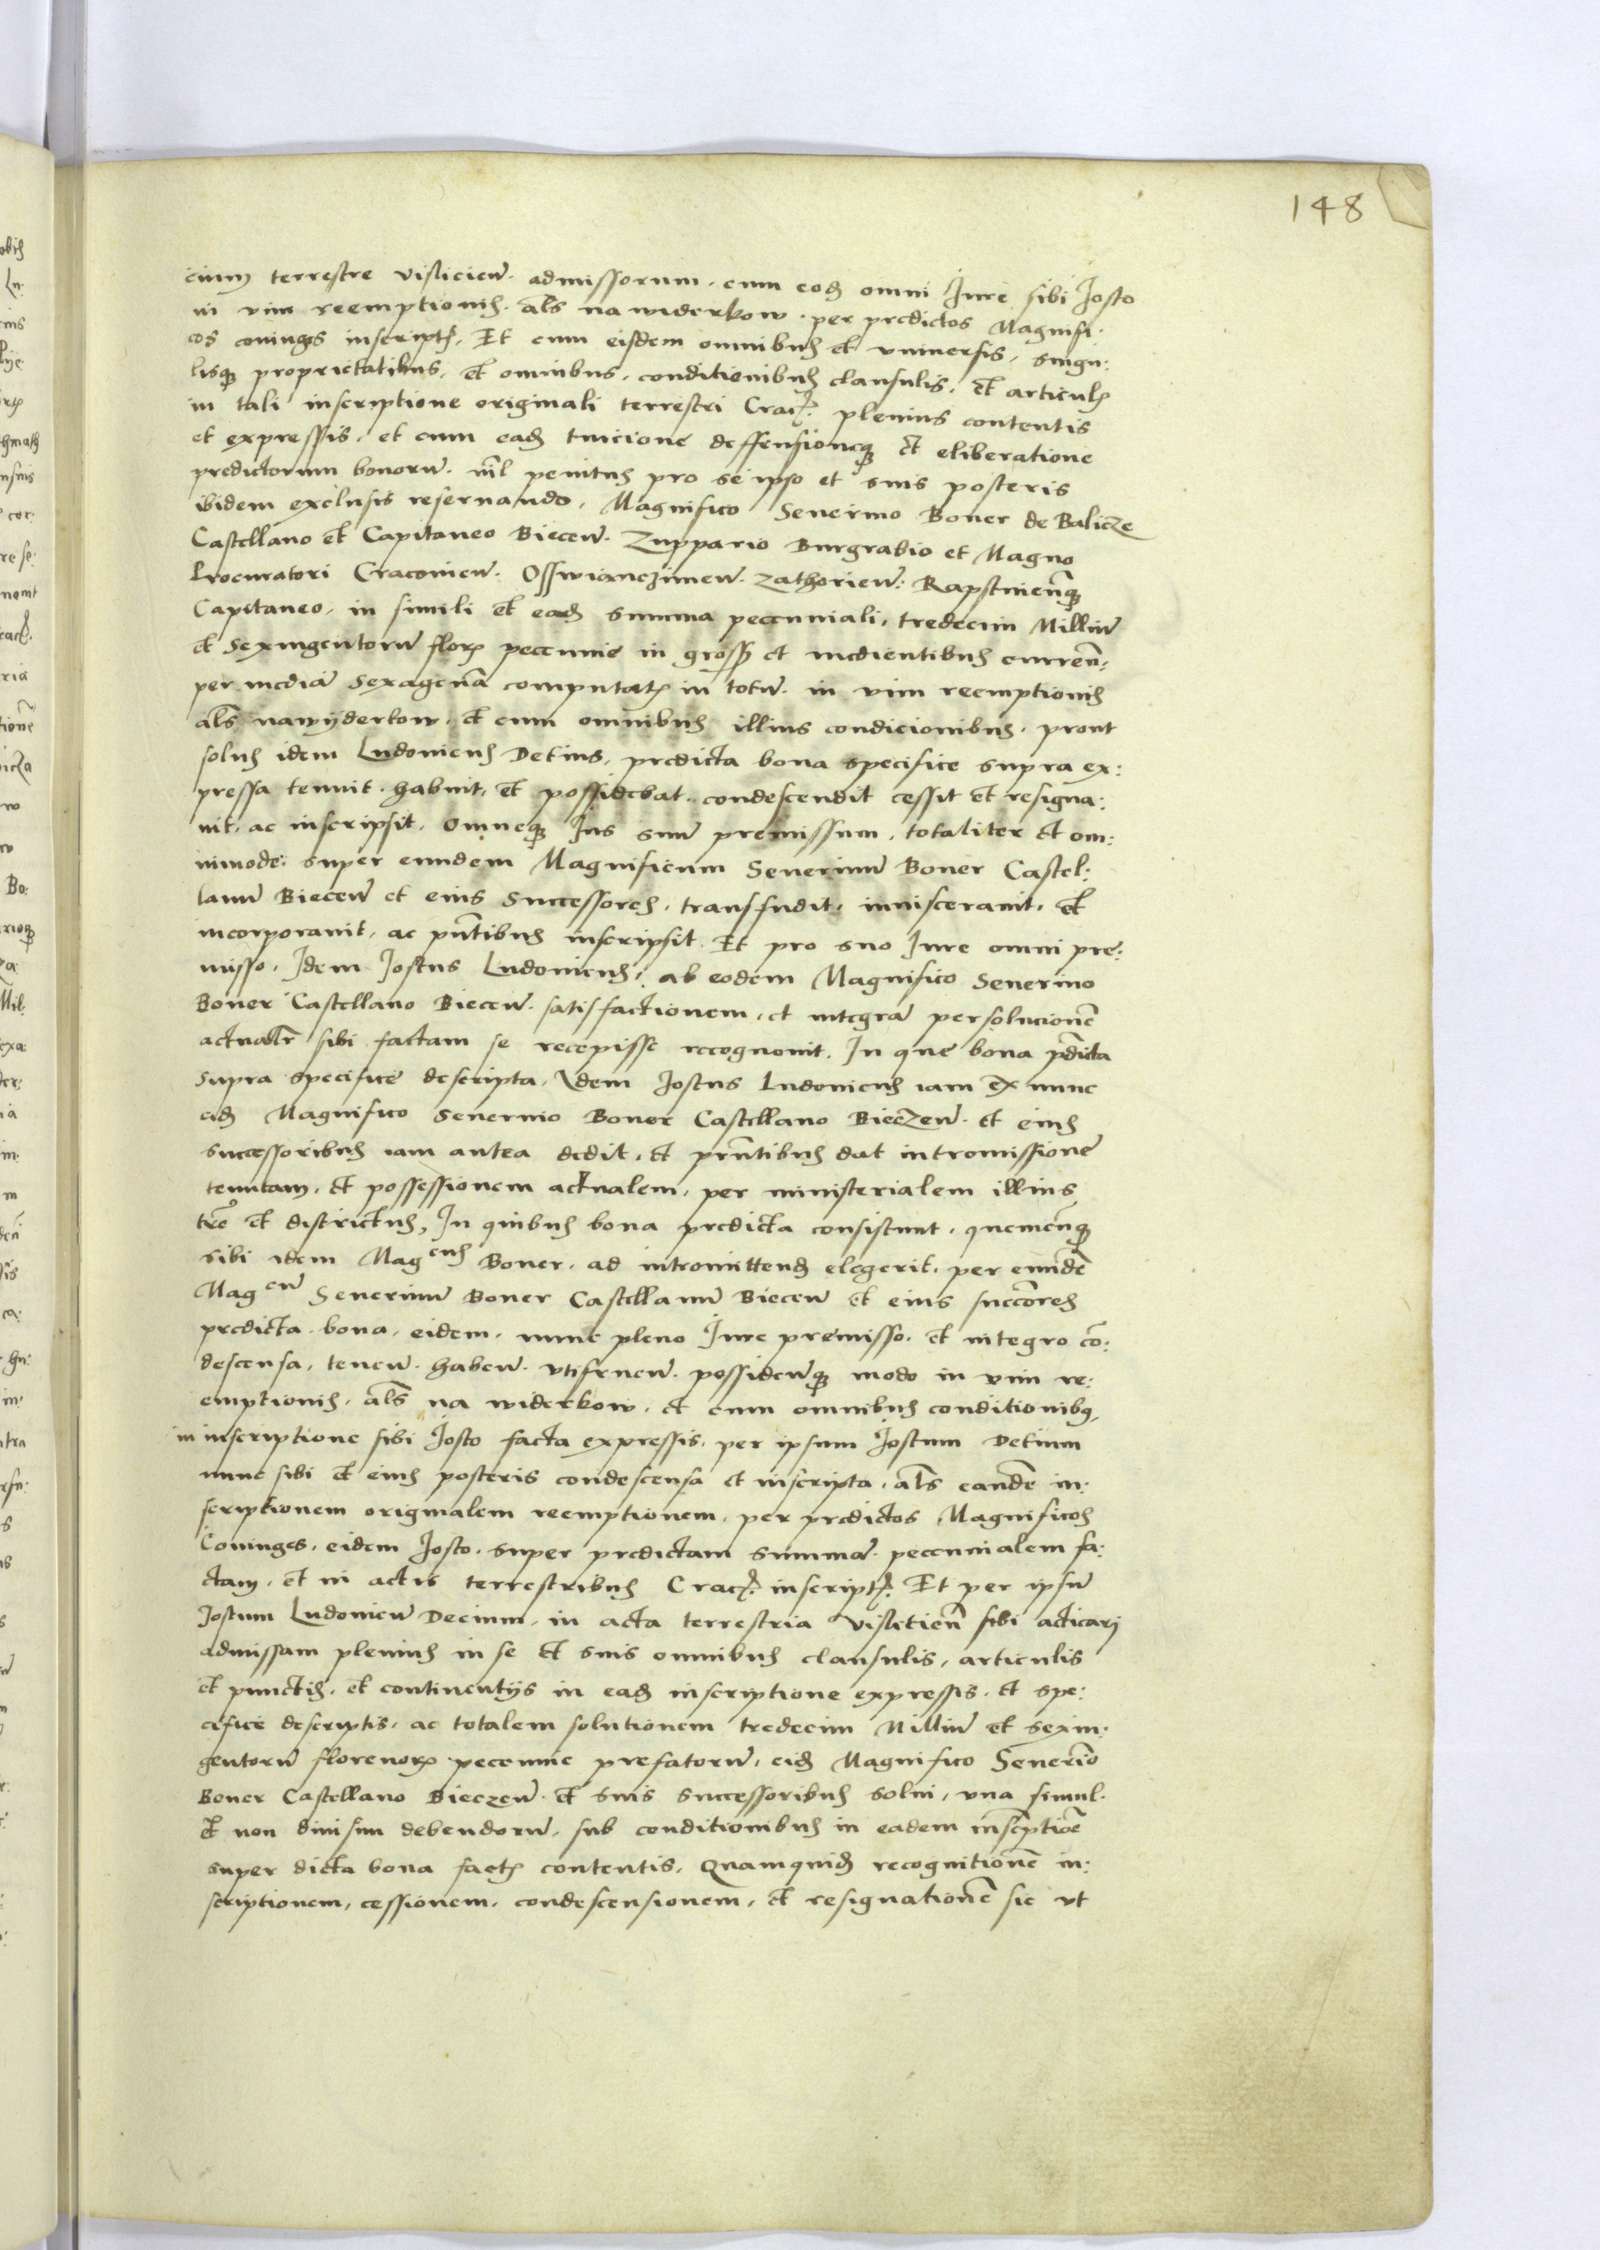 148
cium terrestre vislicien̄. admissorum. cum eod̄ omni Jure sibi Josto
in vim reemptionis. als̄ na widerkow. per predictos Magnifi:
cos coniuges inscript̄. Et cum eisdem omnibus et vniuersis, singu:
lisq̨ proprietatibus, et ominibus, conditionibus clausulis, et articul̄
in tali inscriptione originali terrestri Crac̄. plenius contentis
et expressis, et cum ead̄ tuicione deffensioneq̨ et eliberatione
predictorum bonorū. nil̄ penitus pro se ipso et suis posteris
ibidem exclusis reseruando, Magnifico Seuerino Boner de Balicze
Castellano et Capitaneo Biecen̄. Zuppario Burgrabio et Magno
Procuratori Cracouien̄. Osswianczimen̄. Zathorien̄: Rapstinen̄q̨
Capitaneo, in simili et ead̄ summa peccuniali, tredecim Milliū
et Sexingentorū flor̄ peccunie in gross̄ et medientibus curren̄,
per mediā Sexagenā computat̄ in totū. in vim reemptionis
als̄ nawyderkow, et cum omnibus illius condicionibus. prout
solus idem Ludouicus Detius, predicta bona specifice supra ex:
pressa tenuit. habuit, et possidebat. condescendit cessit et resigna:
uit, ac inscripsit. Omneq̨ Jus suū premissum, totaliter et om:
nimode: super eundem Magnificum Seuerinū Boner Castel:
lanū Biecen̄ et eius Successores, transfudit, inuiscerauit, et
incorporauit, ac pn̄tibus inscripsit. Et pro suo Jure omni pre:
misso, Jdem Jostus Ludouicus, ab eodem Magnifico Seuerino
Boner Castellano Biecen̄. satisfactionem, et integrā persolucionē
actualr̄ sibi factam se recepisse recognouit. In que bona pd̄icta
supra specifice descripta, Jdem Jostus Ludouicus iam ex nunc
eid̄ Magnifico Seuerino Boner Castellano Bieczen̄. et eius
successoribus iam antea dedit, et prn̄tibus dat intromissionē
tenutam, et possessionem actualem, per ministerialem illius
tr̄e et districtus, In quibus bona predicta consistunt, quemcun̄q̨
sibi idem Mag^cus Boner. ad intromittend̄ elegerit, per eundē
Mag^cū Seuerinū Boner Castellanū Biecen̄ et eius succōres
predicta bona, eidem, nunc pleno Jure premisso, et integro cō:
descensa, tenen̄. haben̄. vtifruen̄. possiden̄q̨ modo in vim re:
emptionis, als̄ na widerkow, et cum omnibus conditionibq̨,
in inscriptione sibi Josto facta expressis, per ipsum Jostum Detium
nunc sibi et eius posteris condescensa et inscripta, als̄ eandē in:
scriptionem originalem reemptionem, per predictos Magnificos
Coniuges, eidem Josto, super predictam summā peccunialem fa:
ctam, et in actis terrestribus Crac̄. inscript̄. Et per ipsū
Jostum Ludouicū Decium, in acta terrestria Visliticn̄ sibi acticari
admissam plenius in se et suis omnibus clausulis, articulis
et punctis, et continentijs in ead̄ inscriptione expressis, et spe:
cifice descriptis, ac totalem solutionem tredecim Milliū et sexin:
gentorū florenor̄ peccunie prefatorū, eid̄ Magnifico Seuerīo
Boner Castellano Bieczen̄. et suis successoribus solui, vna simul.
et non diuisim debendorū, sub conditionibus in eadem insc̄ptiōe
super dicta bona fact̄ contentis, Quamquid̄ recognitionē in:
scriptionem, cessionem, condescensionem, et resignationē sic vt